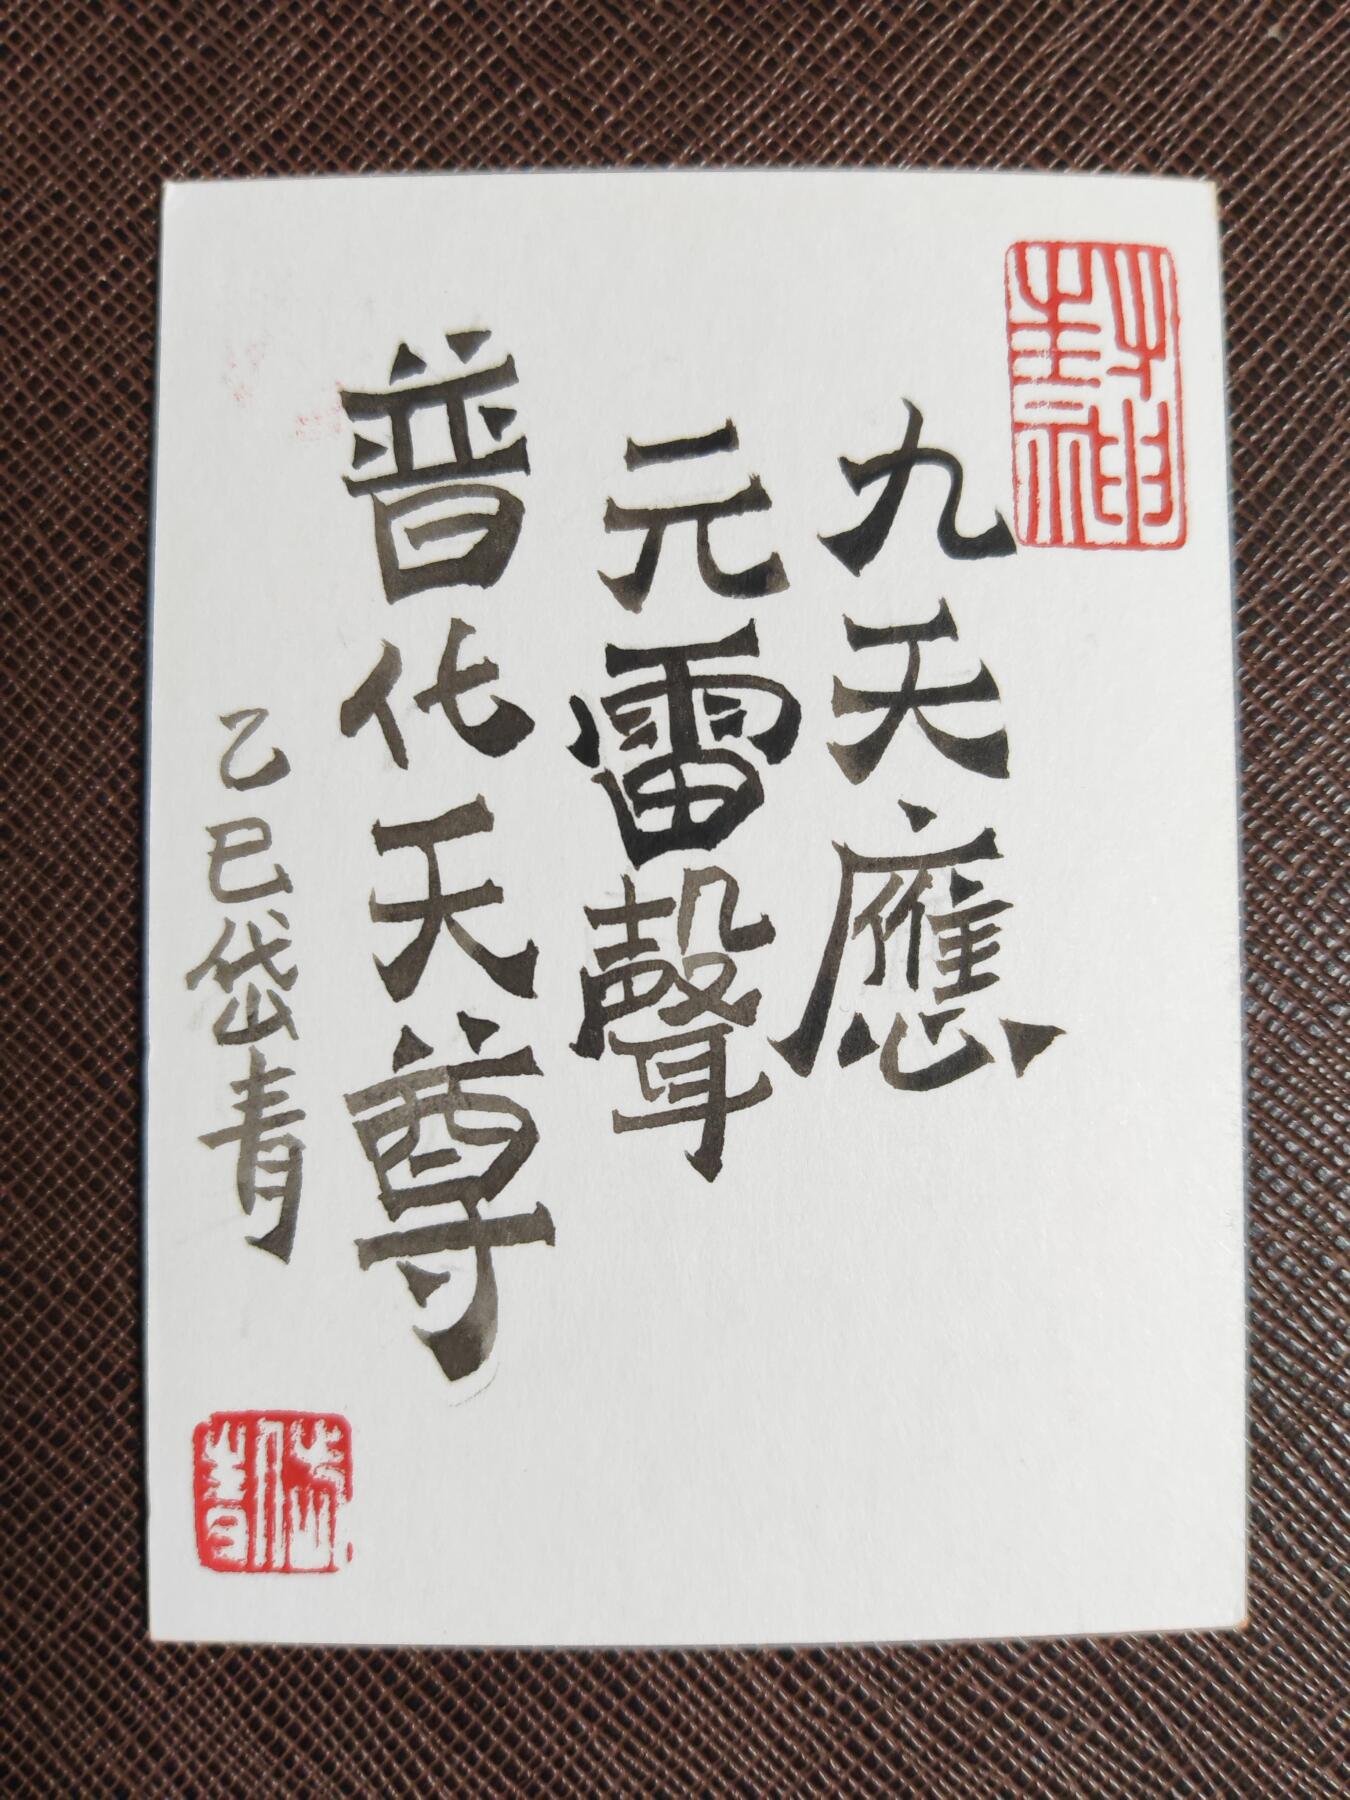 九天應
元雷聲
普化天尊
乙巳岱青
岱青